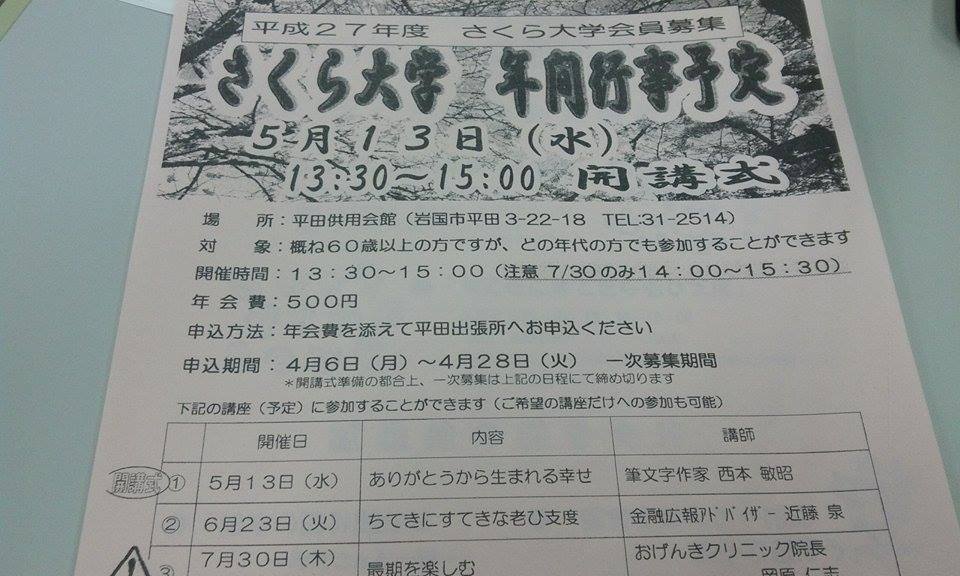 平成２７年度　さくら大学会員募集
さくら大学　年間行事予定
５月１３日（水）
13:30～15:00　開講式
場　　所：平田供用会館（岩国市平田3-22-18　TEL:31-2514）
対　　象：概ね６０歳以上の方ですが、どの年代の方でも参加することができます
開催時間：１３：３０～１５：００（注意 7/30のみ１４：００～１５：３０）
年 会 費：５００円
申込方法：年会費を添えて平田出張所へお申込ください
申込期間：４月６日（月）～４月２８日（火）　一次募集期間
＊開講式準備の都合上、一次募集は上記の日程にて締め切ります
下記の講座（予定）に参加することができます（ご希望の講座だけへの参加も可能）
開催日　内容　講師
開講式 ① ５月１３日（水） ありがとうから生まれる幸せ 筆文字作家 西本 敏昭
② ６月２３日（火） ちてきにすてきな老ひ支度 金融広報ｱﾄﾞﾊﾞｲｻﾞｰ 近藤 泉
③ ７月３０日（木） 最期を楽しむ おげんきクリニック院長